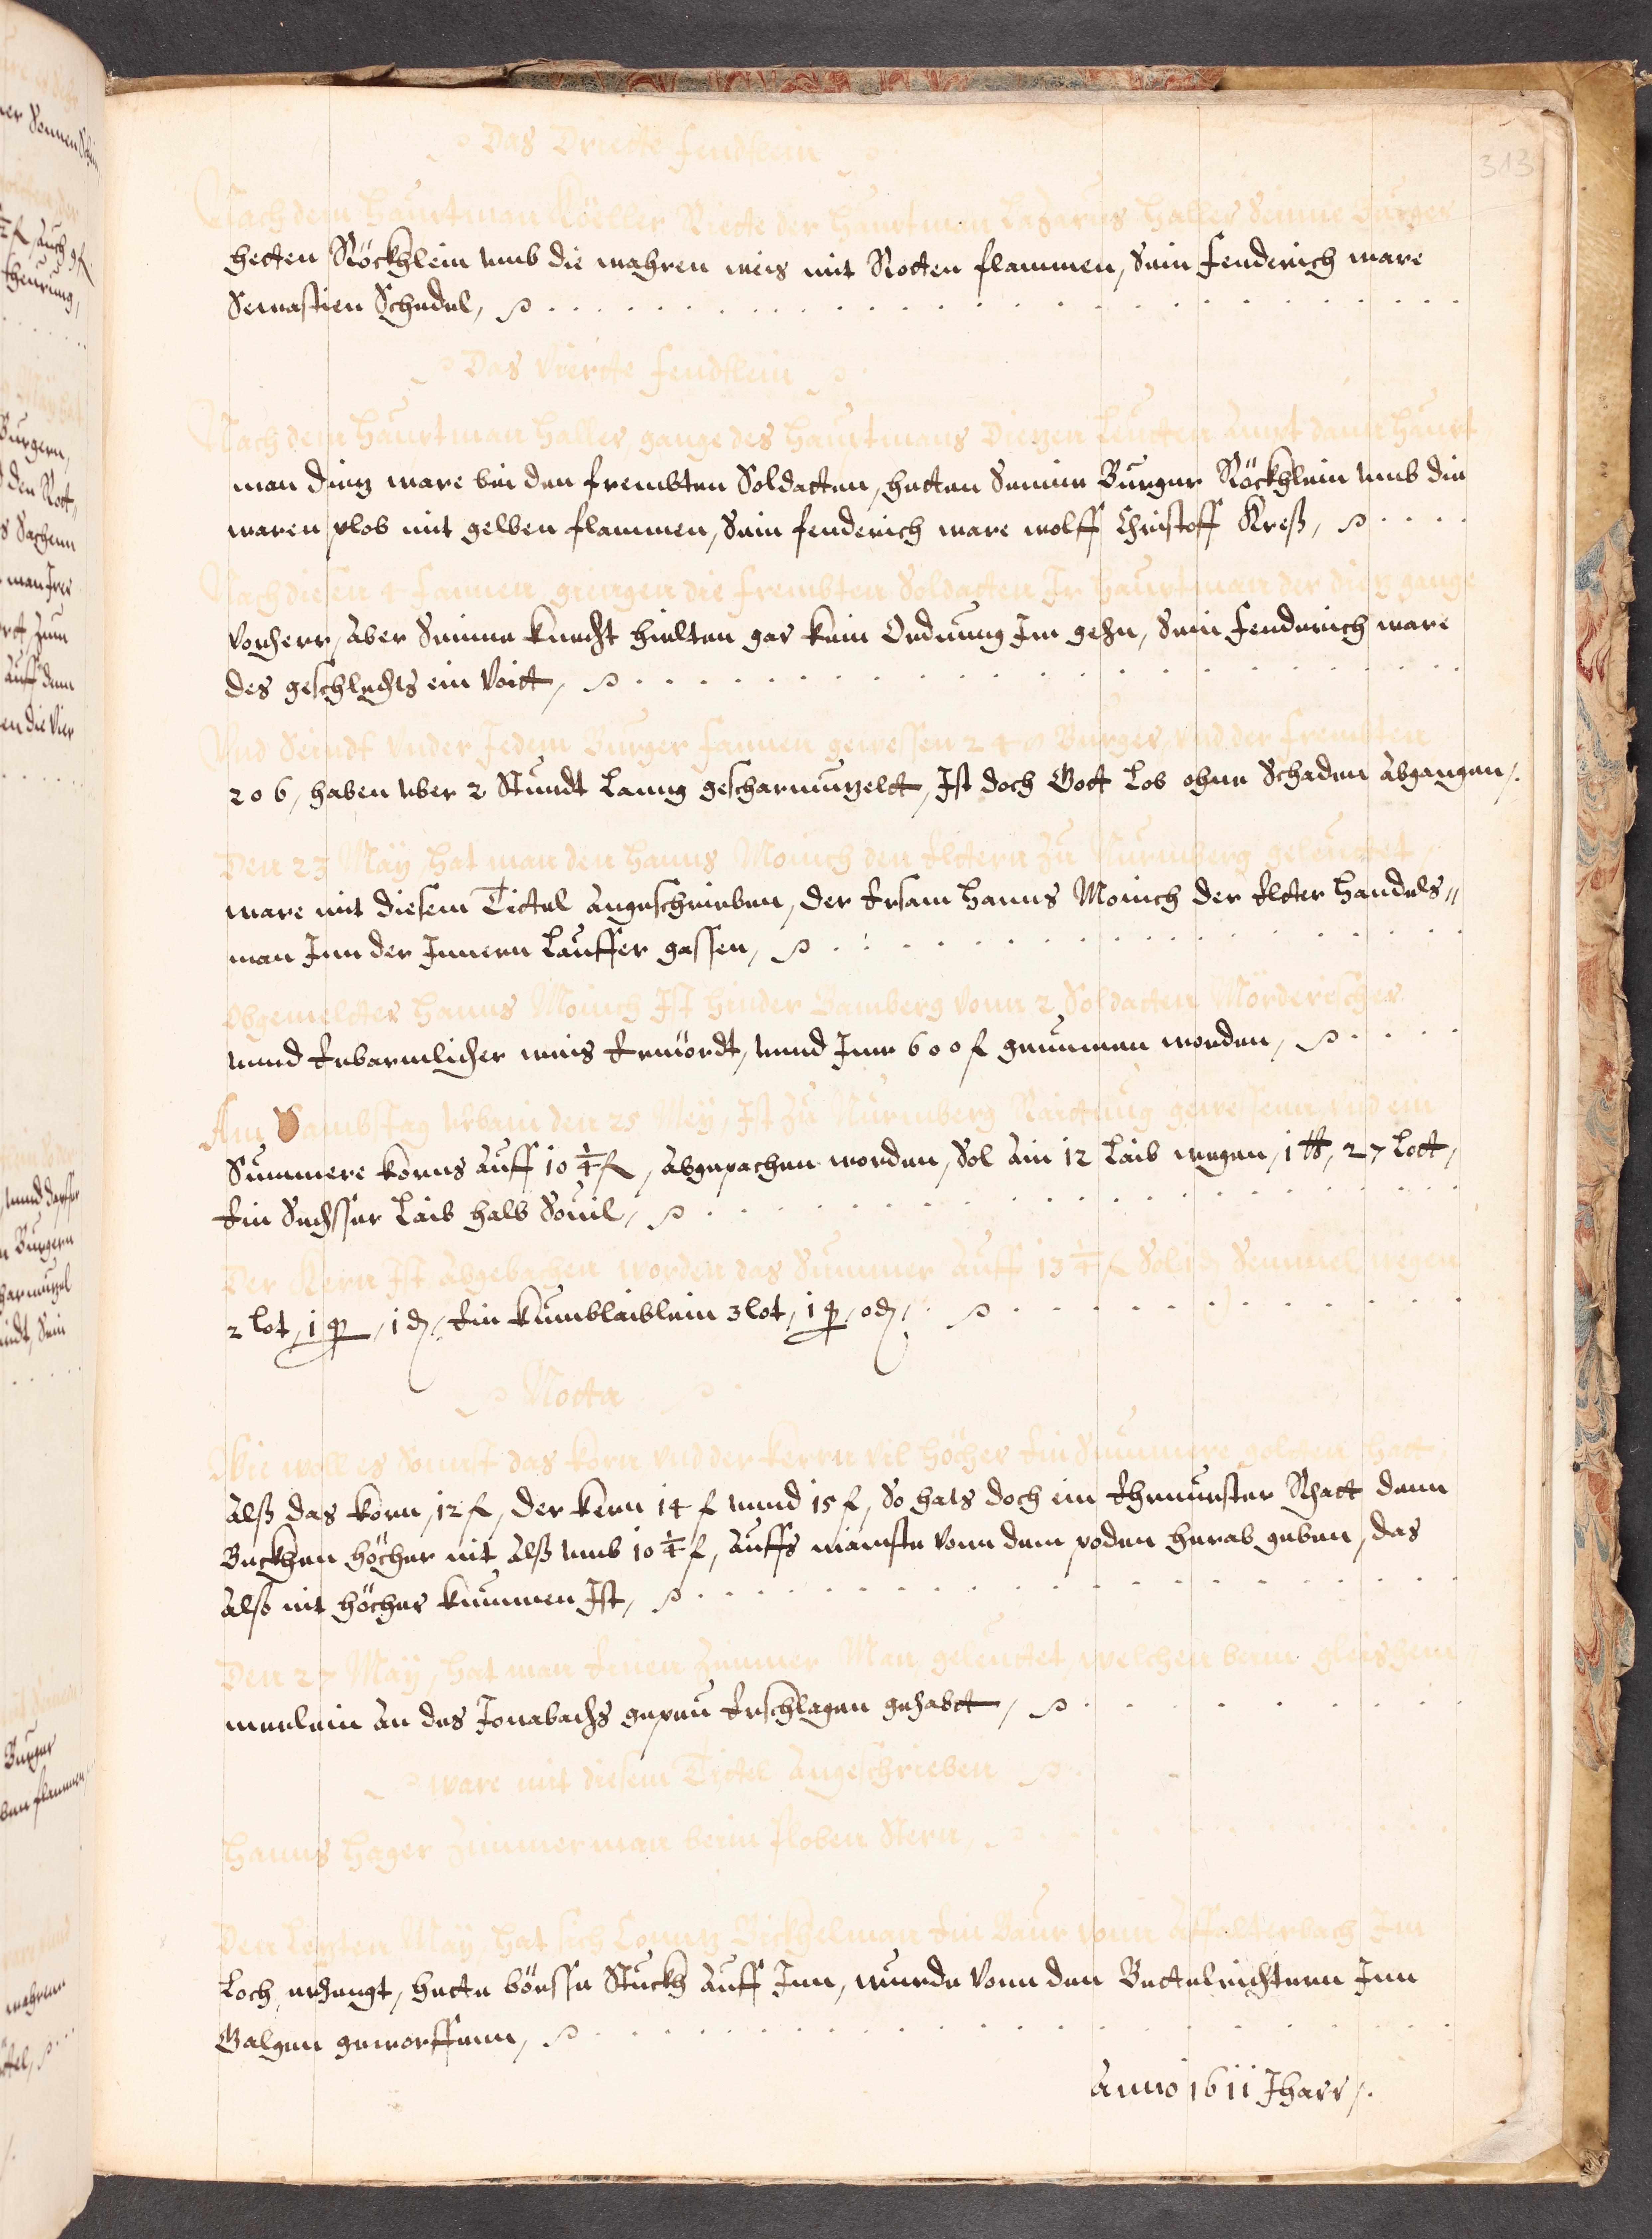 313
Das Driette fendtlein
Nach dem Haubtman Köeller Riette der Haubtman Lazarus Haller Seinne Burger
hetten Röckhlein umb die wahren weis mit Rotten flammen, Sein fenderich ware
Sewastien Schedel,
Das Vierrtte fendtlein
Nach dem Haubtman Haller gange des Haubtmans Dietzen Leutten Ambt dann Haubt
man Dietz ware bei den frembten Soldatten, hetten Seinne Burger Röckhlein umb die
waren plob mit gelben flammen, Sein fenderich ware wolff Christoff Kreß,
Nach diesen 4 fannen giengen die frembten Soldatten Ir Haubtman der dietz gange
vorherr, Aber Seinne knecht hielten gar kein Ordnung Im gehn, Sein fenderich ware
des geschlechts ein Voitt,
Vnd Seindt vnder Jedem Burger fannen gewessen 240 Burger, vnd der frembten
206, haben vber 2 Stundt Lanng gescharmutzeltt, Ist doch Gott Lob ohne Schaden Abgangen.
Den 23 Maÿ hat man den Hanns Monich den Eltern zu Nurmberg geleuttet,
ware mit diesem Tittel Angeschrieben, Der Ersam Hanns Monich der Elter Handels-
man Inn der Innern Lauffer gassen,
Obgemeltter Hanns Monich Ist hinder Bamberg vonn 2 Soldatten Mörderischer
unnd Erbarmlicher weis Ermördt, unnd Imm 600 f genummen worden,
Am Sambstag vrbani den 25 Meÿ, Ist zu Nurmberg Raittung gewessenn, vnd ein
Summere korns auff 10 1/4 f, Abgepachen worden, Sol Ain 12 Laib wegen, 1 ℔, 27 Lott,
Ein Sechsser Laib halb Souil,
Der Kern Ist Abgebachen worden das Summer Auff 13 1/4 f Sol 1 ₰ Semmel wegen
2 lot, 1 q, 1 ₰, Ein kumblaiblein 3 lot, 1 q, 0 ₰,
Notta
Wie woll es Sonnst das korn vnd der kerrn vil höcher Ein Summere golten hatt,
Alß das korn, 12 f, der kern 14 f unnd 15 f, So hats doch ein Ehrnuester Rhatt denn
Beckhen höcher nit Alß umb 10 1/4 f, Auffs mainste vonn dem poden herab geben, das
Also nit höcher kummen Ist,
Den 27 Maÿ, hat man Einen Zimmer Man geleuttet, welchen beim gleishem
merlein An des Jonabachs gepeu Erschlagen gehabtt,
Ware mit diesem Tittel Angeschrieben
Hanns Hager Zimmerman beim Ploben Stern,
Den Lezten Maÿ, hat sich Conntz Bickhelman Ein Baur vonn Affalterbach Im
Loch, erhengt, hette bösse Stuckh Auff Im, wurde vonn den Bettelrichtern Inn
Galgen geworffenn,
Anno 1611 Jharr.